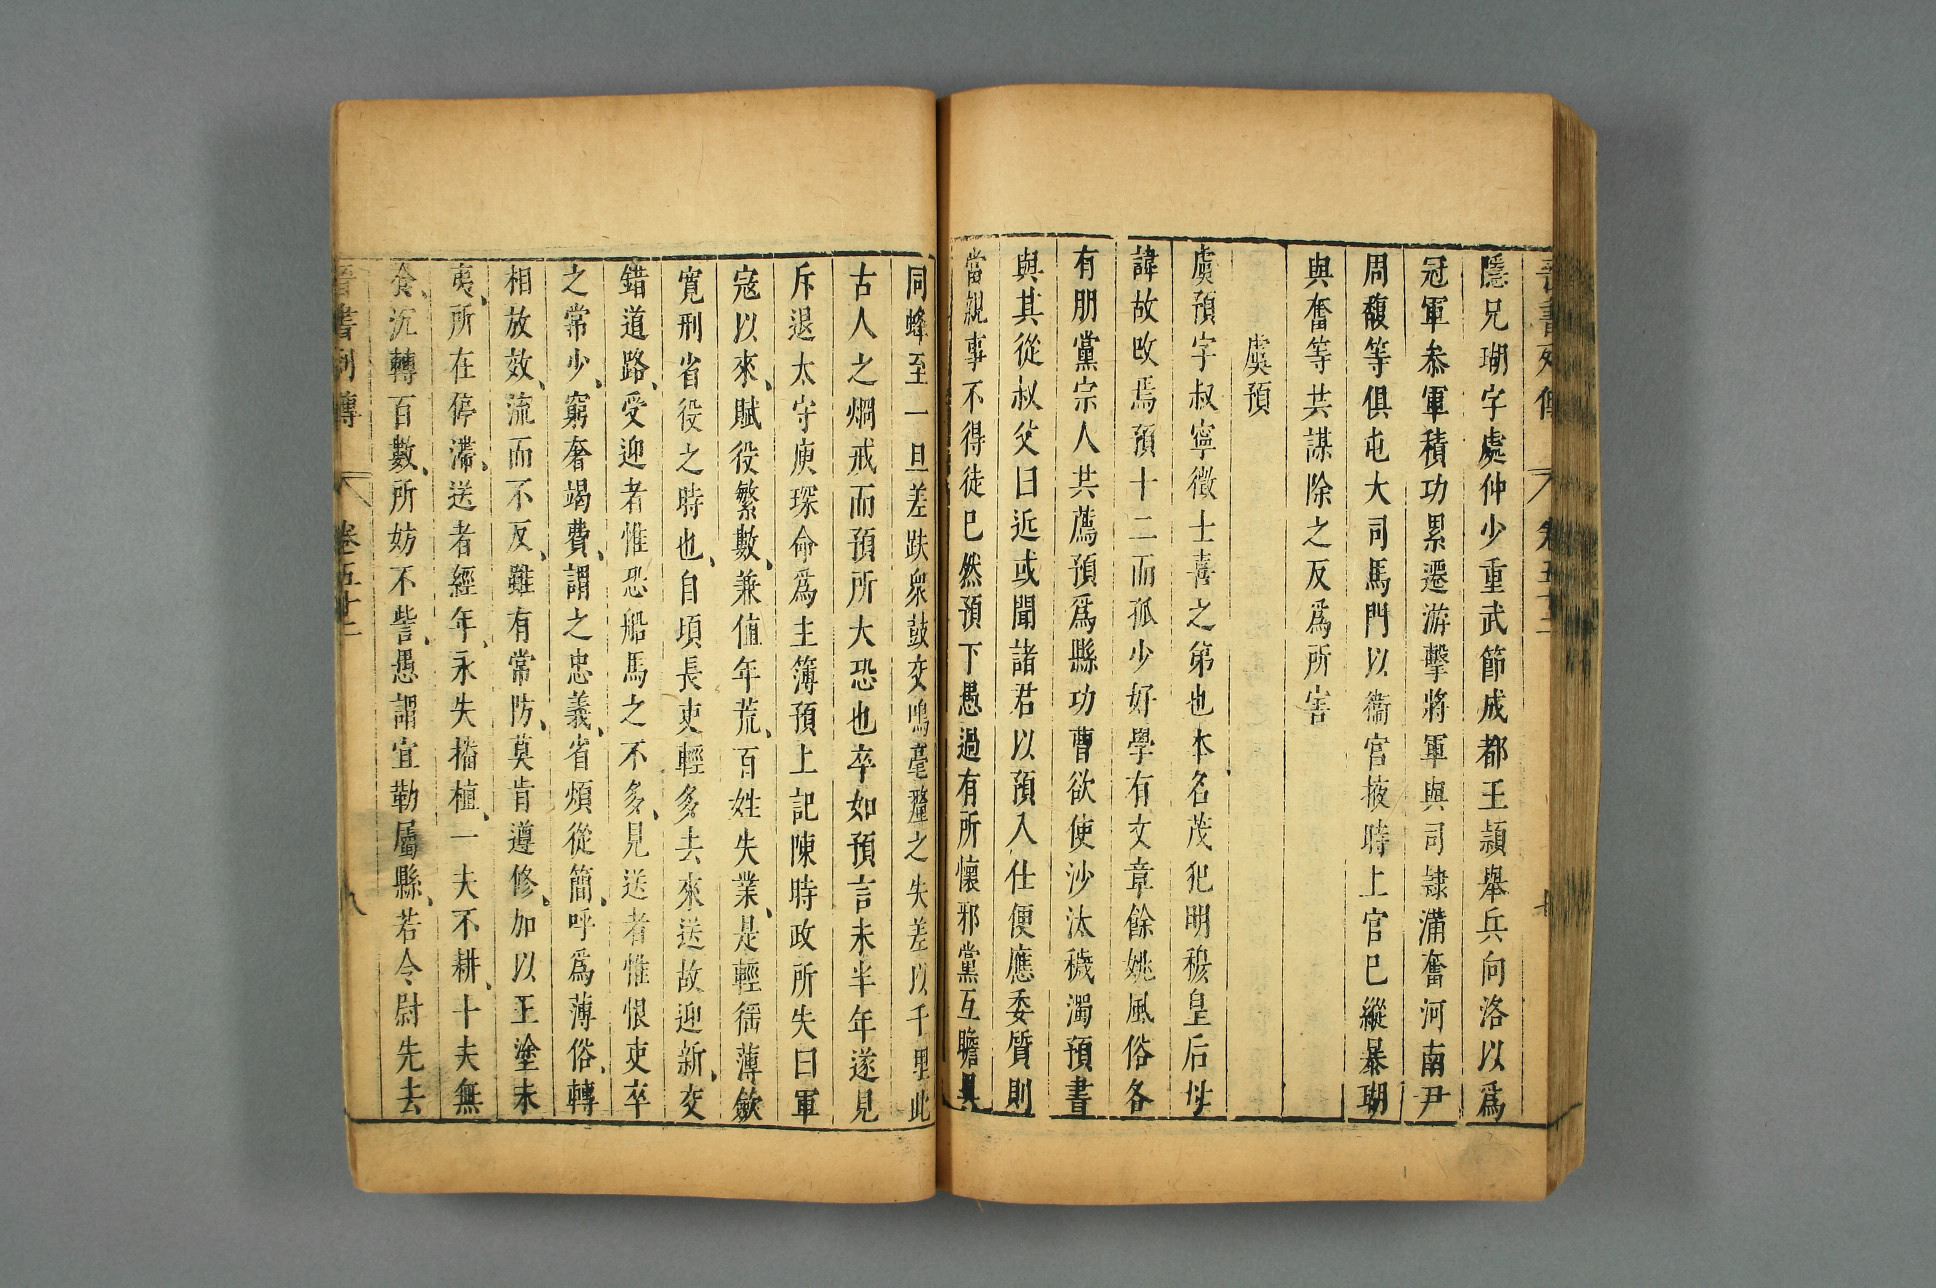 晉書列傳 卷五十二
隱兄瑚字處仲少重武節成都王穎舉兵向洛以爲
冠軍叅軍積功累遷游擊將軍與司隷滿奮河南尹
周馥等俱屯大司馬門以衞宫掖時上官巳縱暴瑚
與奮等共謀除之反爲所害
虞預
虞預字叔寧徵士喜之弟也本名茂犯明穆皇后母
諱故改焉預十二而孤少好學有文章餘姚風俗各
有朋黨宗人共薦預爲縣功曹欲使沙汰穢濁預書
與其從叔父曰近或聞諸君以預入仕便應委質則
當親事不得徒巳然預下愚過有所懷邪黨互瞻異
同蜂至一旦差跌衆鼓交鳴毫釐之失差以千里此
古人之烱戒而預所大恐也卒如預言未半年遂見
斥退太守庾琛命爲主簿預上記陳時政所失曰軍
寇以來、賦役繁數、兼值年荒、百姓失業、是輕徭薄斂
寛刑省役之時也、自頃長吏輕多去來送故迎新、交
錯道路、受迎者惟恐船馬之不多、見送者惟恨吏卒
之常少、窮奢竭費、謂之忠義、省煩從簡、呼爲薄俗、轉
相放效、流而不反、雖有常防、莫肯遵修、加以王塗未
夷、所在停滯、送者經年、永失播植、一夫不耕、十夫無
食、況轉百數、所妨不訾、愚謂宜勒屬縣、若令尉先去
晉書列傳 卷五十二 八